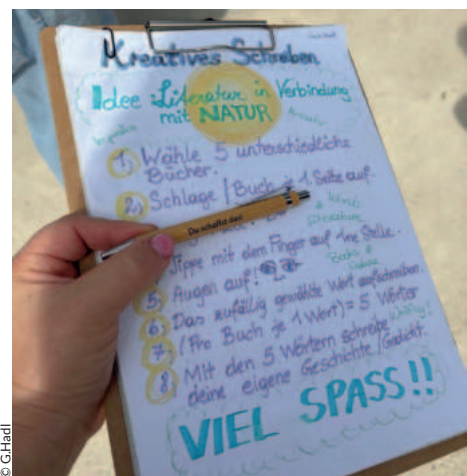 Kreatives Schreiben
Idee Literatur in Verbindung
mit NATUR
1.) Wähle 5 unterschiedliche
Bücher.
2.) Schlage / Buch je 1 Seite auf.
Du schaffst das!
Tippe mit dem Finger auf 1ne Stelle.
5.) Augen auf!
6.) Das zufällig gewählte Wort aufschreiben.
7.) (Pro Buch je 1 Wort) = 5 Wörter
8.) Mit den 5 Wörtern schreibe
deine eigene Geschichte / Gedicht.
VIEL SPASS!!
© G.Hadl